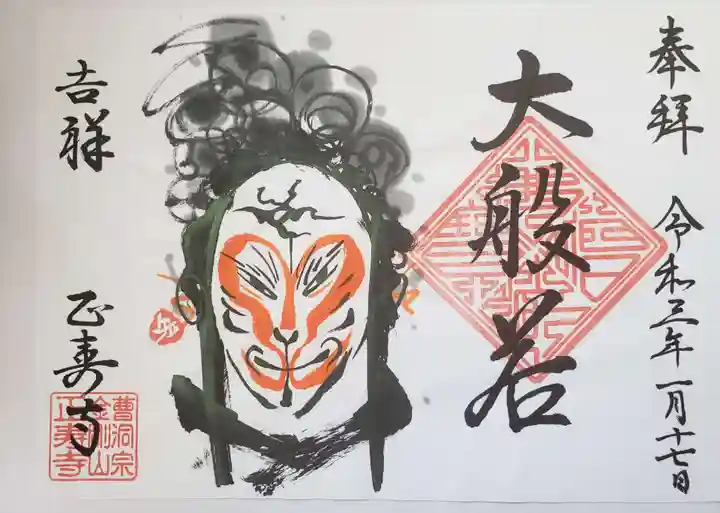 奉拝
令和三年一月十七日
大般若
吉祥
正寿寺
曹洞宗
金剛山
正寿寺